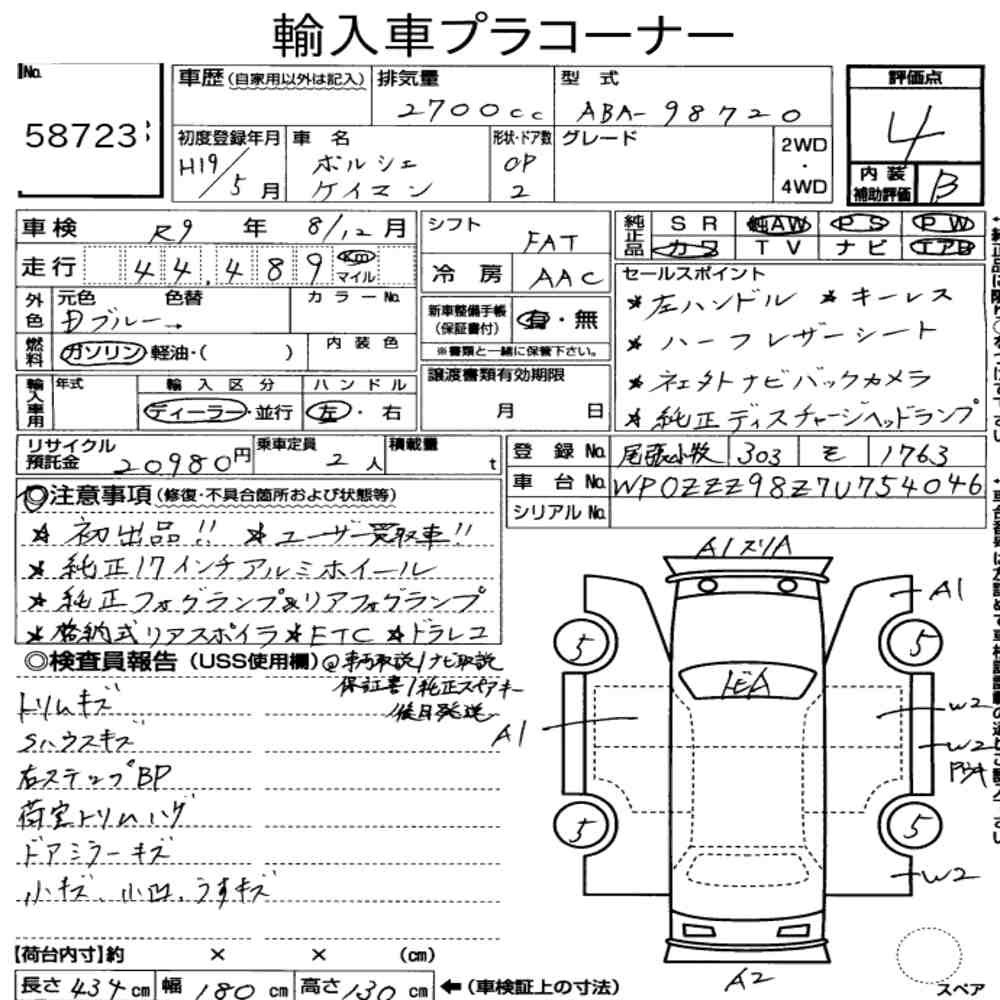 輸入車プラコーナー
No. 58723
車歴(自家用以外は記入) 排気量 2700cc 型式 ABA-98720 評価点 4
初度登録年月 H19/5月 車名 ポルシェ ケイマン 形状・ドア数 CP 2 グレード 2WD・4WD 内装補助評価 B
車検 R9年 8/12月 シフト FAT 純正品 SR 純AW PS PW
カワ TV ナビ エアB
走行 44,489 km マイル 冷房 AAC
セールスポイント
外色 元色 色替 カラーNo. 新車整備手帳(保証書付) 有・無
ブルー→
※書類と一緒に保管下さい。
燃料 ガソリン 軽油・( ) 内装色
*左ハンドル *キーレス
*ハーフレザーシート
*社外ナビバックカメラ
*純正ディスチャージヘッドランプ
輸入車用 年式 輸入区分 ディーラー・並行 ハンドル 左・右
譲渡書類有効期限 月 日
リサイクル預託金 20980円 乗車定員 2人 積載量 t
登録No. 尾張小牧 303 モ 1763
車台No. WP0ZZZ98Z7U754046
シリアルNo.
◎注意事項(修復・不具合箇所および状態等)
*初出品!! *ユーザー買取車!!
*純正17インチアルミホイール
*純正フォグランプ&リアフォグランプ
*格納式リアスポイラ *ETC *ドラレコ
◎検査員報告(USS使用欄) @車両取説/ナビ取説
保証書/純正スペアキー
後日発送
トリムキズ
Sハウスキズ
右ステップBP
荷室トリムハゲ
ドアミラーキズ
小キズ、小凹、うすキズ
A1スリA
A1
5
5
A1
W2
W2
5
5
W2
A2
スペア
【荷台内寸】約 × × (cm)
長さ 434cm 幅 180cm 高さ 130cm ←(車検証上の寸法)